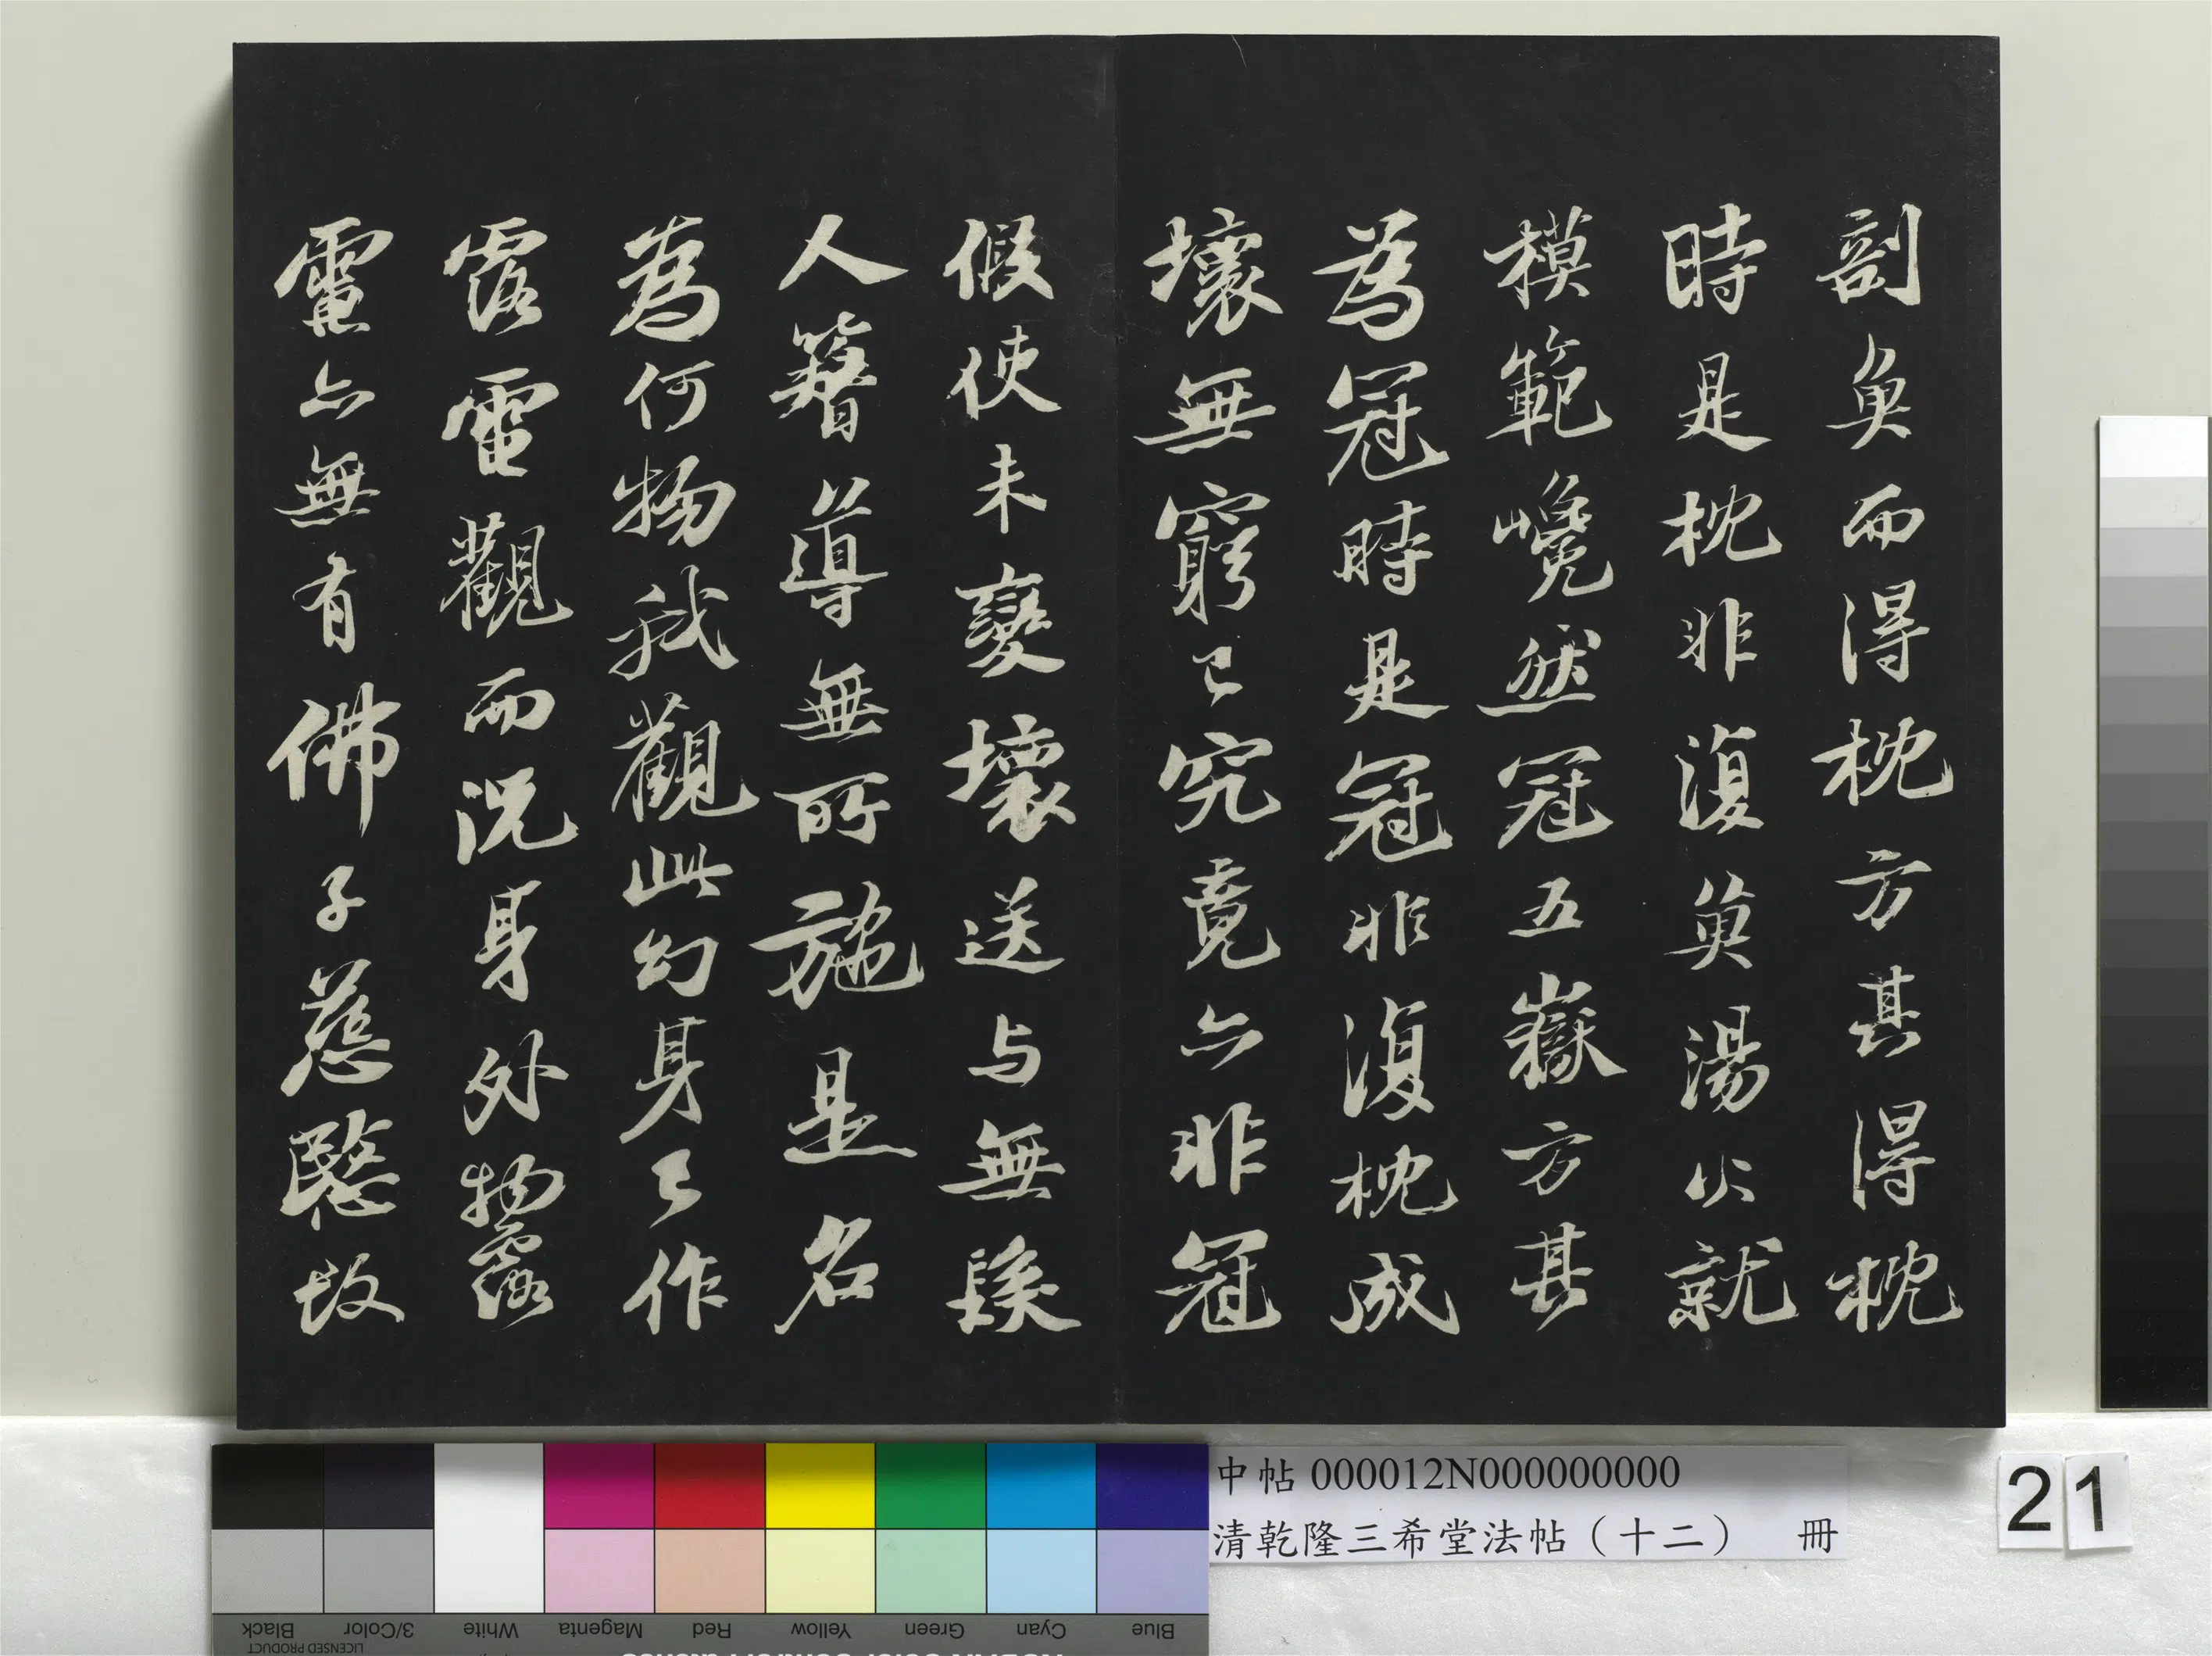 剖魚而得枕方其得枕
時是枕非復魚湯火就
模範巉然冠五嶽方其
為冠時是冠非復枕成
壞無窮已究竟亦非冠
假使未變壞送与無髮
人簪導無所施是名
為何物我觀此幻身已作
露電觀而況身外物露
電亦無有佛子慈愍故
中帖 000012N000000000
清乾隆三希堂法帖（十二） 冊
21
Black 3/Color White Magenta Red Yellow Green Cyan Blue
LICENSED PRODUCT